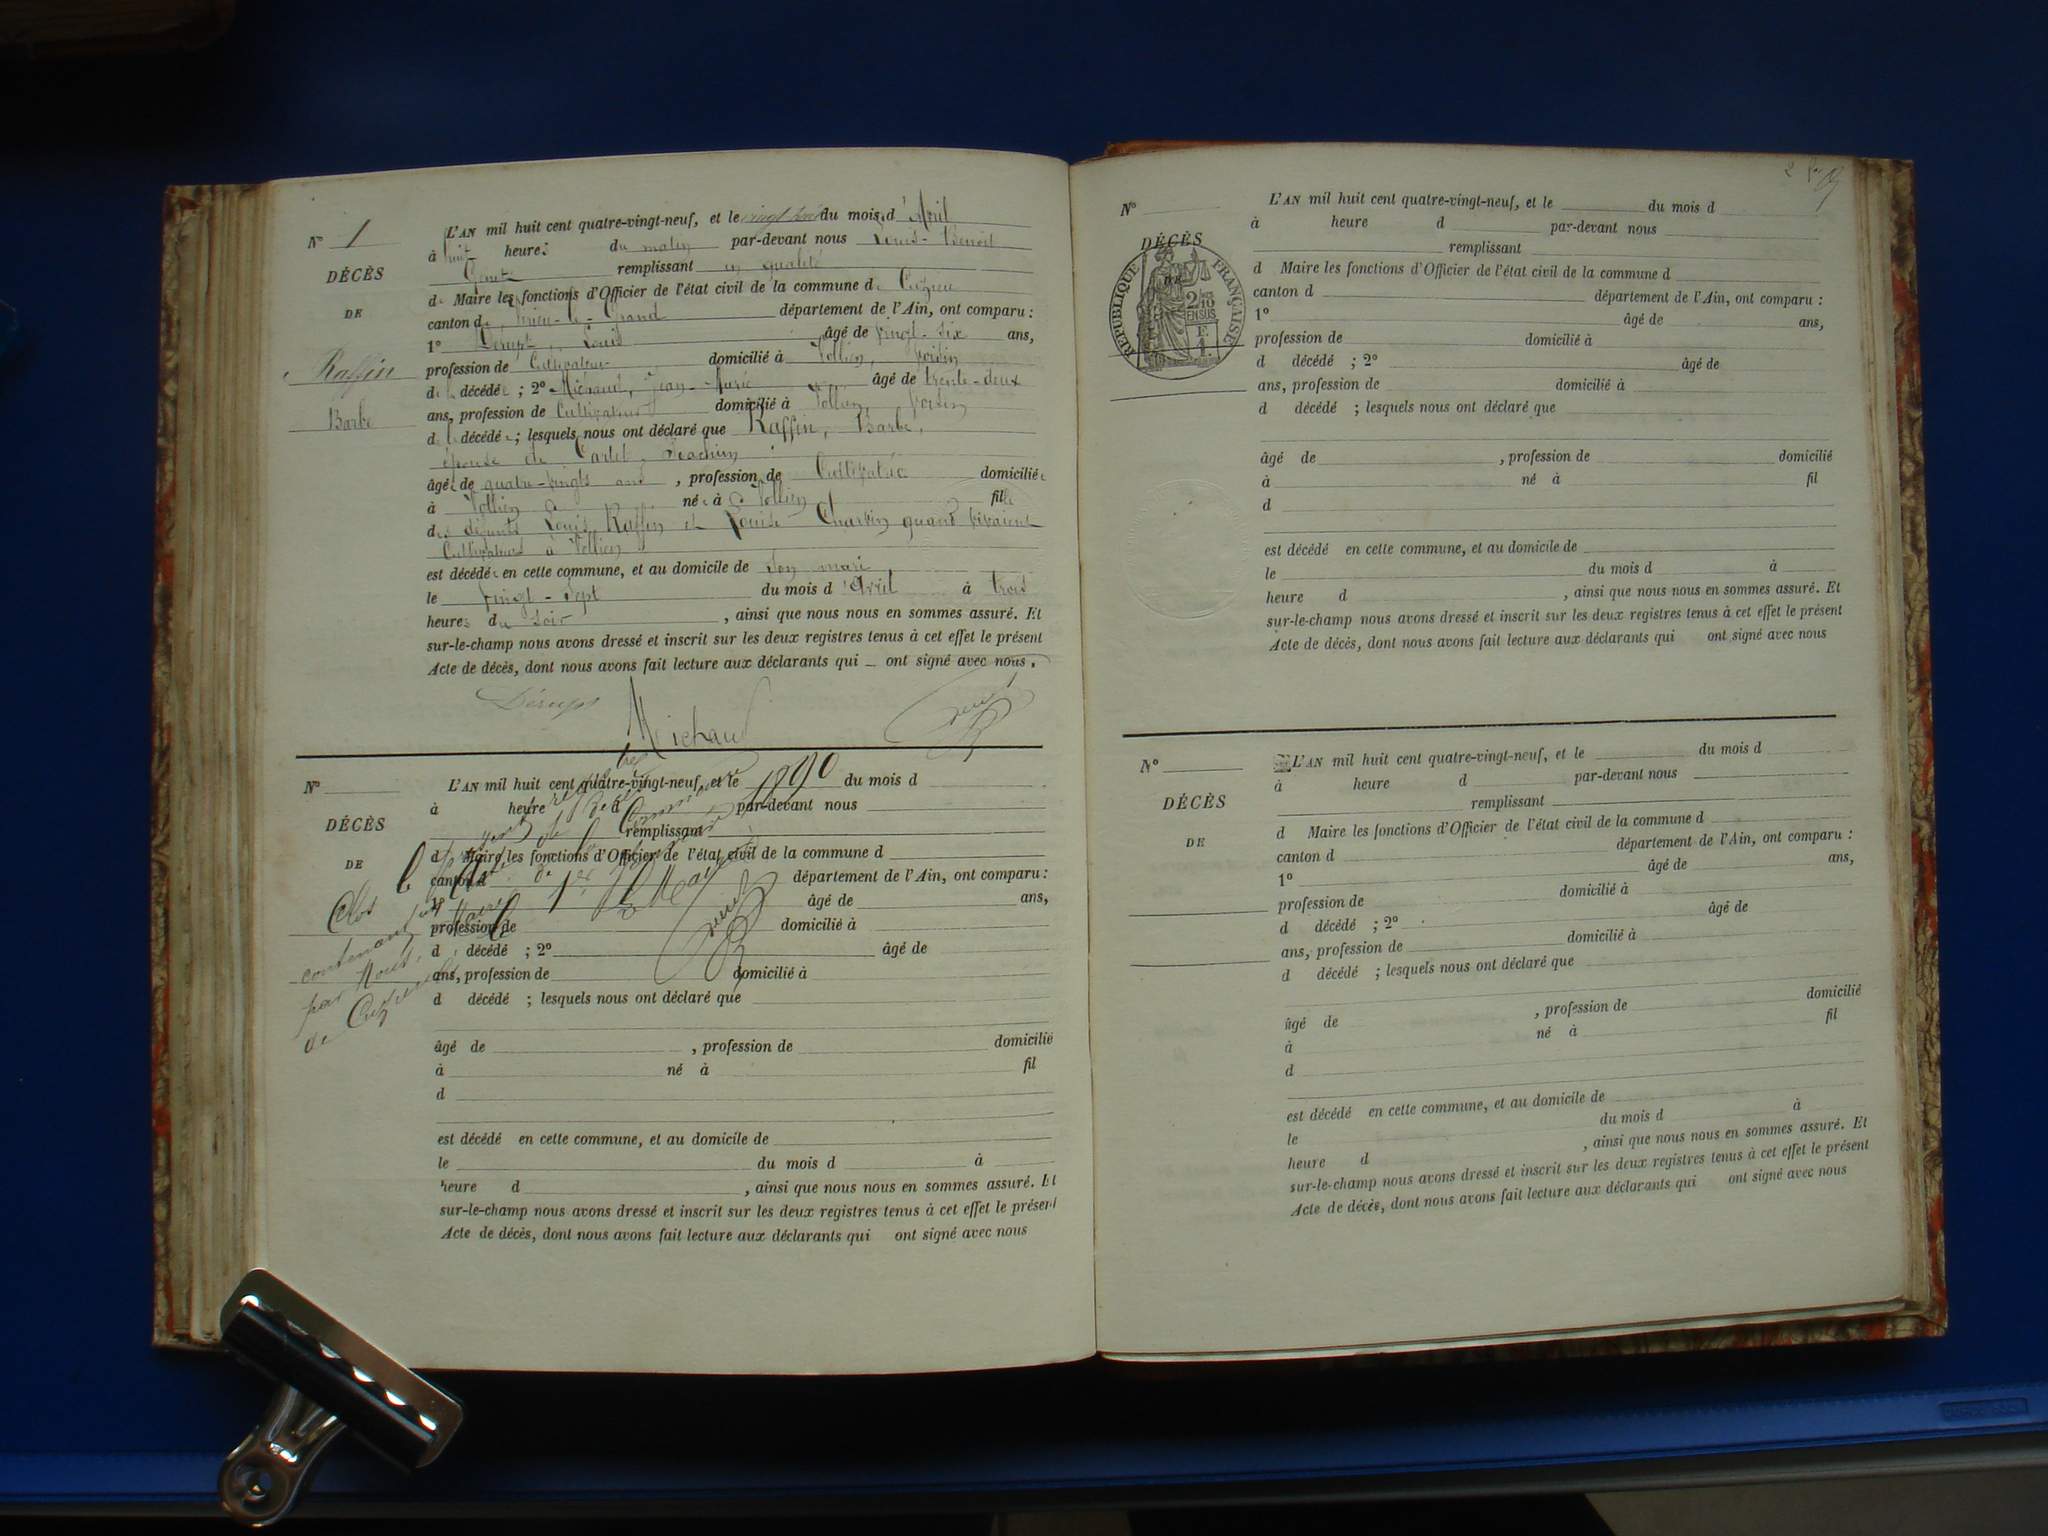 N° 1
DÉCÈS
DE
Raffin
Barbe
L'AN mil huit cent quatre-vingt-neuf, et le vingt huit du mois d'Avril
à huit heures du matin par-devant nous Louis-Benoit
remplissant en qualité
de Maire les fonctions d'Officier de l'état civil de la commune de Cuzieu
canton de Virieu-le-Grand département de l'Ain, ont comparu :
1° Dérupt, Louis âgé de vingt-six ans,
profession de Cultivateur domicilié à Vollien, voisin
de la décédée ; 2° Michaud, Jean-Marie âgé de trente-deux
ans, profession de Cultivateur domicilié à Vollien, voisin
de la décédée ; lesquels nous ont déclaré que Raffin, Barbe,
épouse de Cartel Joachim
âgée de quatre-vingts ans, profession de Cultivatrice domiciliée
à Vollien née à Vollien fille
des défunts Louis Raffin et Louise Charvin quand vivaient
Cultivateurs à Vollien
est décédée en cette commune, et au domicile de son mari
le vingt-sept du mois d'Avril à trois
heures du soir, ainsi que nous nous en sommes assuré. Et
sur-le-champ nous avons dressé et inscrit sur les deux registres tenus à cet effet le présent
Acte de décès, dont nous avons fait lecture aux déclarants qui ont signé avec nous.
Dérupt Michaud
N°
DÉCÈS
DE
Clos
contenant
par Nous,
de Cuzieu
L'AN mil huit cent quatre-vingt-neuf, et le 1890 du mois d
à heure d par-devant nous
remplissant
d Maire les fonctions d'Officier de l'état civil de la commune d
canton d département de l'Ain, ont comparu :
1° âgé de ans,
profession de domicilié à
d décédé ; 2° âgé de
ans, profession de domicilié à
d décédé ; lesquels nous ont déclaré que
âgé de , profession de domicilié
à né à fil
d
est décédé en cette commune, et au domicile de
le du mois d à
heure d , ainsi que nous nous en sommes assuré. Et
sur-le-champ nous avons dressé et inscrit sur les deux registres tenus à cet effet le présent
Acte de décès, dont nous avons fait lecture aux déclarants qui ont signé avec nous
2
N°
DÉCÈS
DE
RÉPUBLIQUE FRANÇAISE
2/10
EN SUS
F.
1.
L'AN mil huit cent quatre-vingt-neuf, et le du mois d
à heure d par-devant nous
remplissant
d Maire les fonctions d'Officier de l'état civil de la commune d
canton d département de l'Ain, ont comparu :
1° âgé de ans,
profession de domicilié à
d décédé ; 2° âgé de
ans, profession de domicilié à
d décédé ; lesquels nous ont déclaré que
âgé de , profession de domicilié
à né à fil
d
est décédé en cette commune, et au domicile de
le du mois d à
heure d , ainsi que nous nous en sommes assuré. Et
sur-le-champ nous avons dressé et inscrit sur les deux registres tenus à cet effet le présent
Acte de décès, dont nous avons fait lecture aux déclarants qui ont signé avec nous
N°
DÉCÈS
DE
L'AN mil huit cent quatre-vingt-neuf, et le du mois d
à heure d par-devant nous
remplissant
d Maire les fonctions d'Officier de l'état civil de la commune d
canton d département de l'Ain, ont comparu :
1° âgé de ans,
profession de domicilié à
d décédé ; 2° âgé de
ans, profession de domicilié à
d décédé ; lesquels nous ont déclaré que
âgé de , profession de domicilié
à né à fil
d
est décédé en cette commune, et au domicile de
le du mois d à
heure d , ainsi que nous nous en sommes assuré. Et
sur-le-champ nous avons dressé et inscrit sur les deux registres tenus à cet effet le présent
Acte de décès, dont nous avons fait lecture aux déclarants qui ont signé avec nous